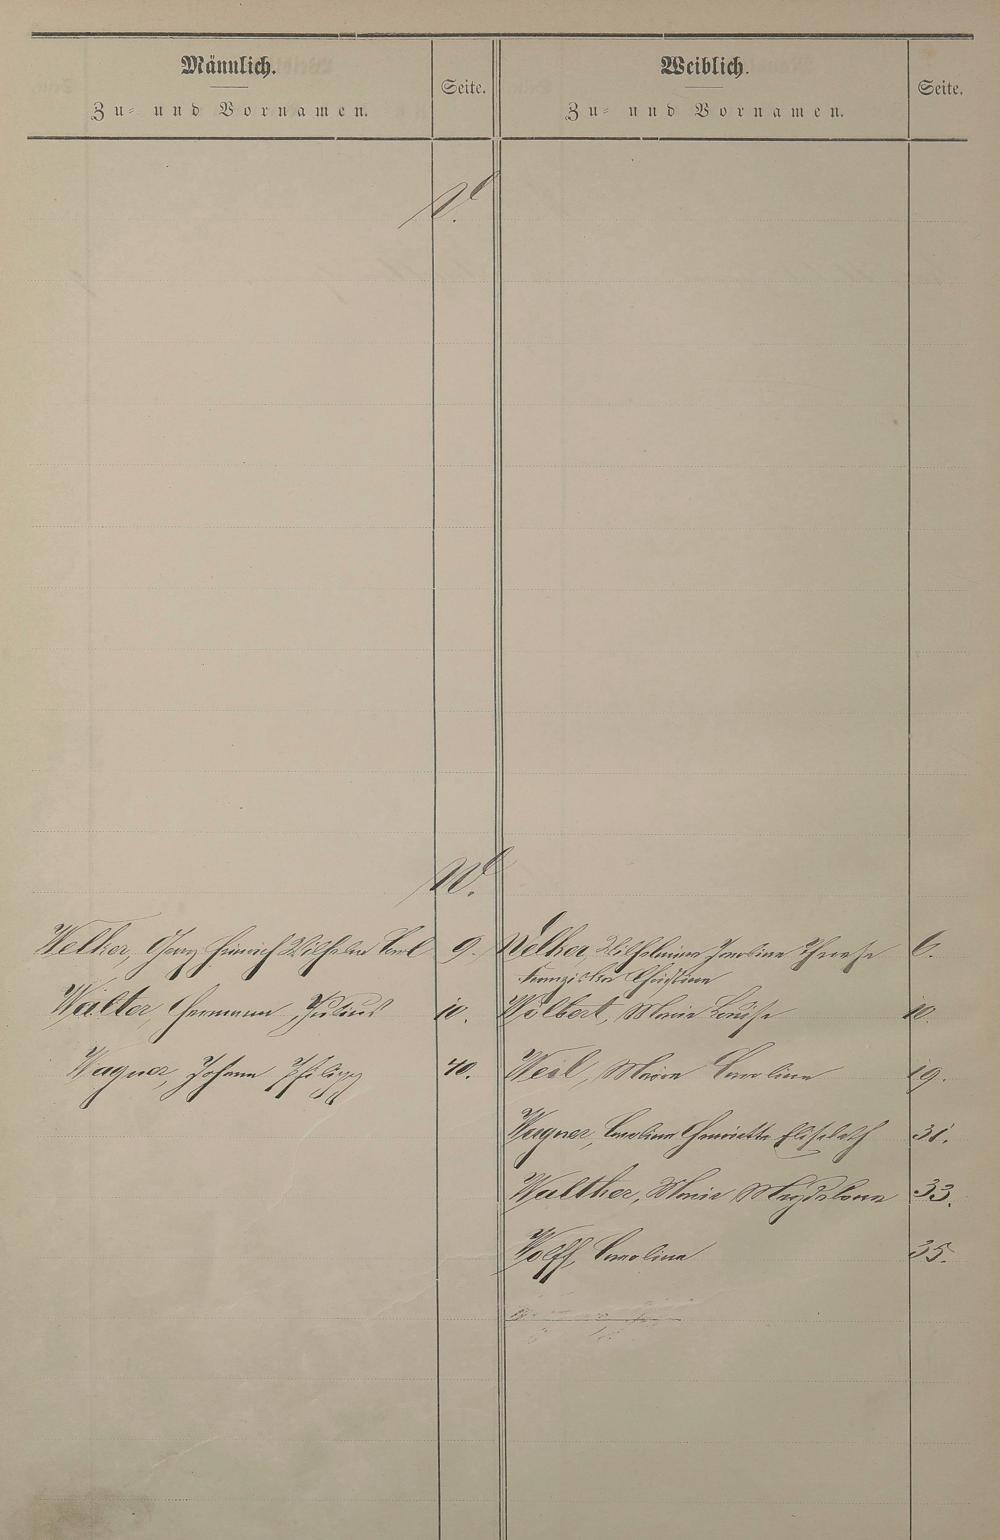 Männlich.
Zu- und Vornamen.
Seite.
Weiblich.
Zu- und Vornamen.
Seite.
V.
W.
Welker, Georg Heinrich Wilhelm Carl 9.
Walter, Hermann Julius 10.
Wagner, Johann Philipp 40.
Welker, Wilhelmine Caroline Therese 6.
Franziska Christine
Wolbert, Marie Louise 10.
Weil, Maria Caroline 19.
Wagner, Caroline Henriette Elisabeth 31.
Walther, Marie Magdalena 33.
Wolff, Caroline 35.